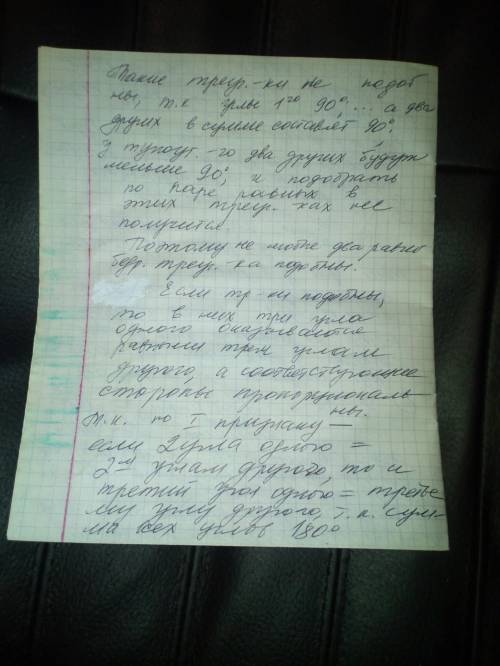 Такие треуг.-ки не подоб
ны, т.к углы 1го 90°,... а два
других в сумме составлят 90°.
У тупоуг.-го два других будут
меньше 90°, и подобрать
по паре равных в
этих треуг.-ках не
получится
Поэтому не два равно
бедр. треуг.-ка подобны.
Если тр-ки подобны,
то в них три угла
одного оказываются
равными трем углам
другого, а соответствующие
стороны пропорциональ-
ны.
т.к. по I признаку —
если 2 угла одного =
2-м углам другого, то и
третий угол одного = треть
ему углу другого, т.к. сум-
ма всех углов 180°